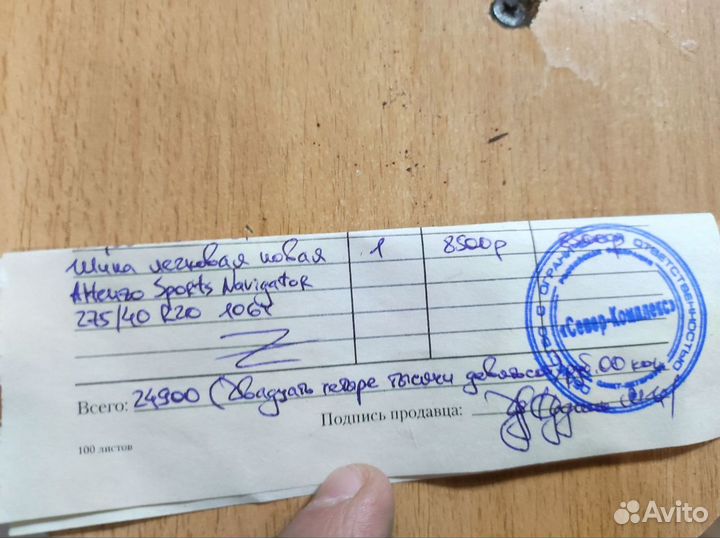 Шина легковая новая 1 8500р
Attenzo Sports Navigator
275/40 R20 106Y
Всего: 24900 (Двадцать четыре тысячи девятьсот) руб. 00 коп
Подпись продавца:
100 листов
ОГРАНИЧЕННОЙ ОТВЕТСТВЕННОСТЬЮ
«Север-Комплекс»
САНКТ-ПЕТЕРБУРГ
Avito